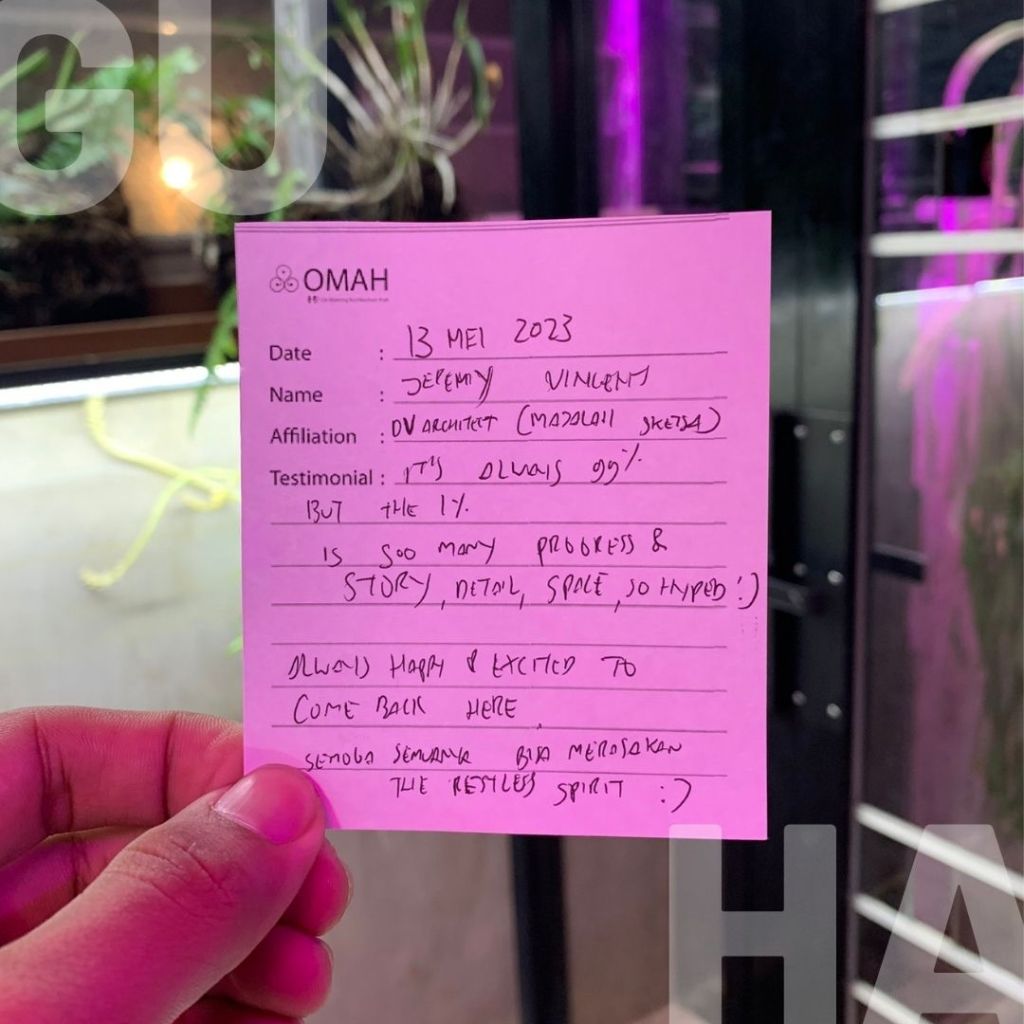 GU
OMAH
Date : 13 MEI 2023
Name : JEREMY VINCENT
Affiliation : DV ARCHITECT (MAJALAH SKETSA)
Testimonial : IT'S ALWAYS 99%
BUT THE 1%
IS SOO MANY PROGRESS &
STORY, DETAIL, SPACE, SO HYPED :)
ALWAYS HAPPY & EXCITED TO
COME BACK HERE,
SEMOGA SEMUANYA BISA MERASAKAN
THE RESTLESS SPIRIT :)
HA